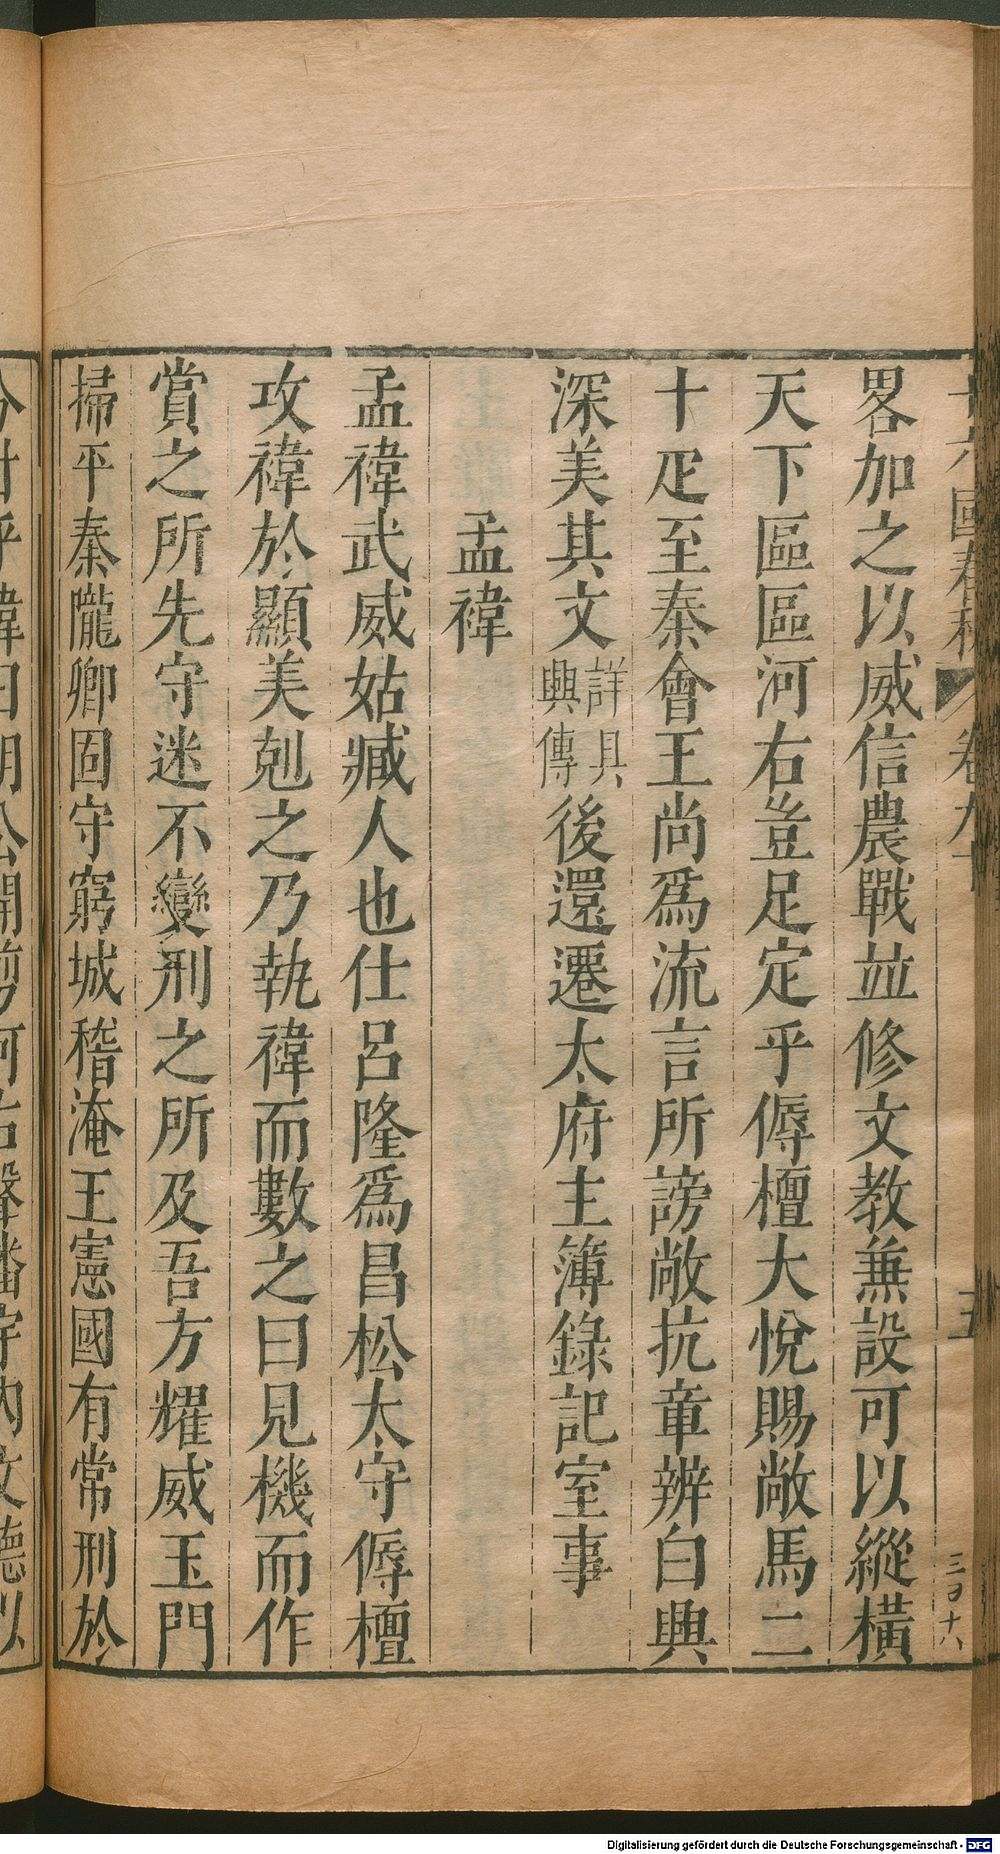 畧加之以威信農戰並修文教兼設可以縱橫
天下區區河右豈足定乎傉檀大悅賜敞馬二
十疋至秦會王尚爲流言所謗敞抗章辨白興
深美其文詳具興傳後還遷太府主簿錄記室事
孟禕
孟禕武威姑臧人也仕呂隆爲昌松太守傉檀
攻禕於顯美剋之乃執禕而數之曰見機而作
賞之所先守迷不變刑之所及吾方耀威玉門
掃平秦隴卿固守窮城稽淹王憲國有常刑於
Digitalisierung gefördert durch die Deutsche Forschungsgemeinschaft - DFG